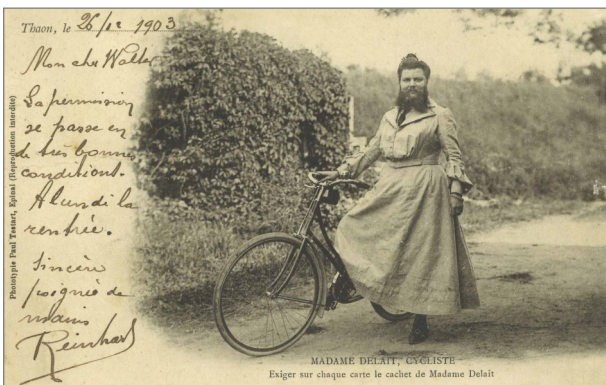 Thaon, le 26/12 1903
Mon cher Walter
La permission
se passe en
de très bonnes
conditions.
A lundi la
rentrée.
Sincère
poignée de
mains
Reinhart
Phototypie Paul Testart, Epinal (Reproduction interdite)
MADAME DELAIT, CYCLISTE
Exiger sur chaque carte le cachet de Madame Delait